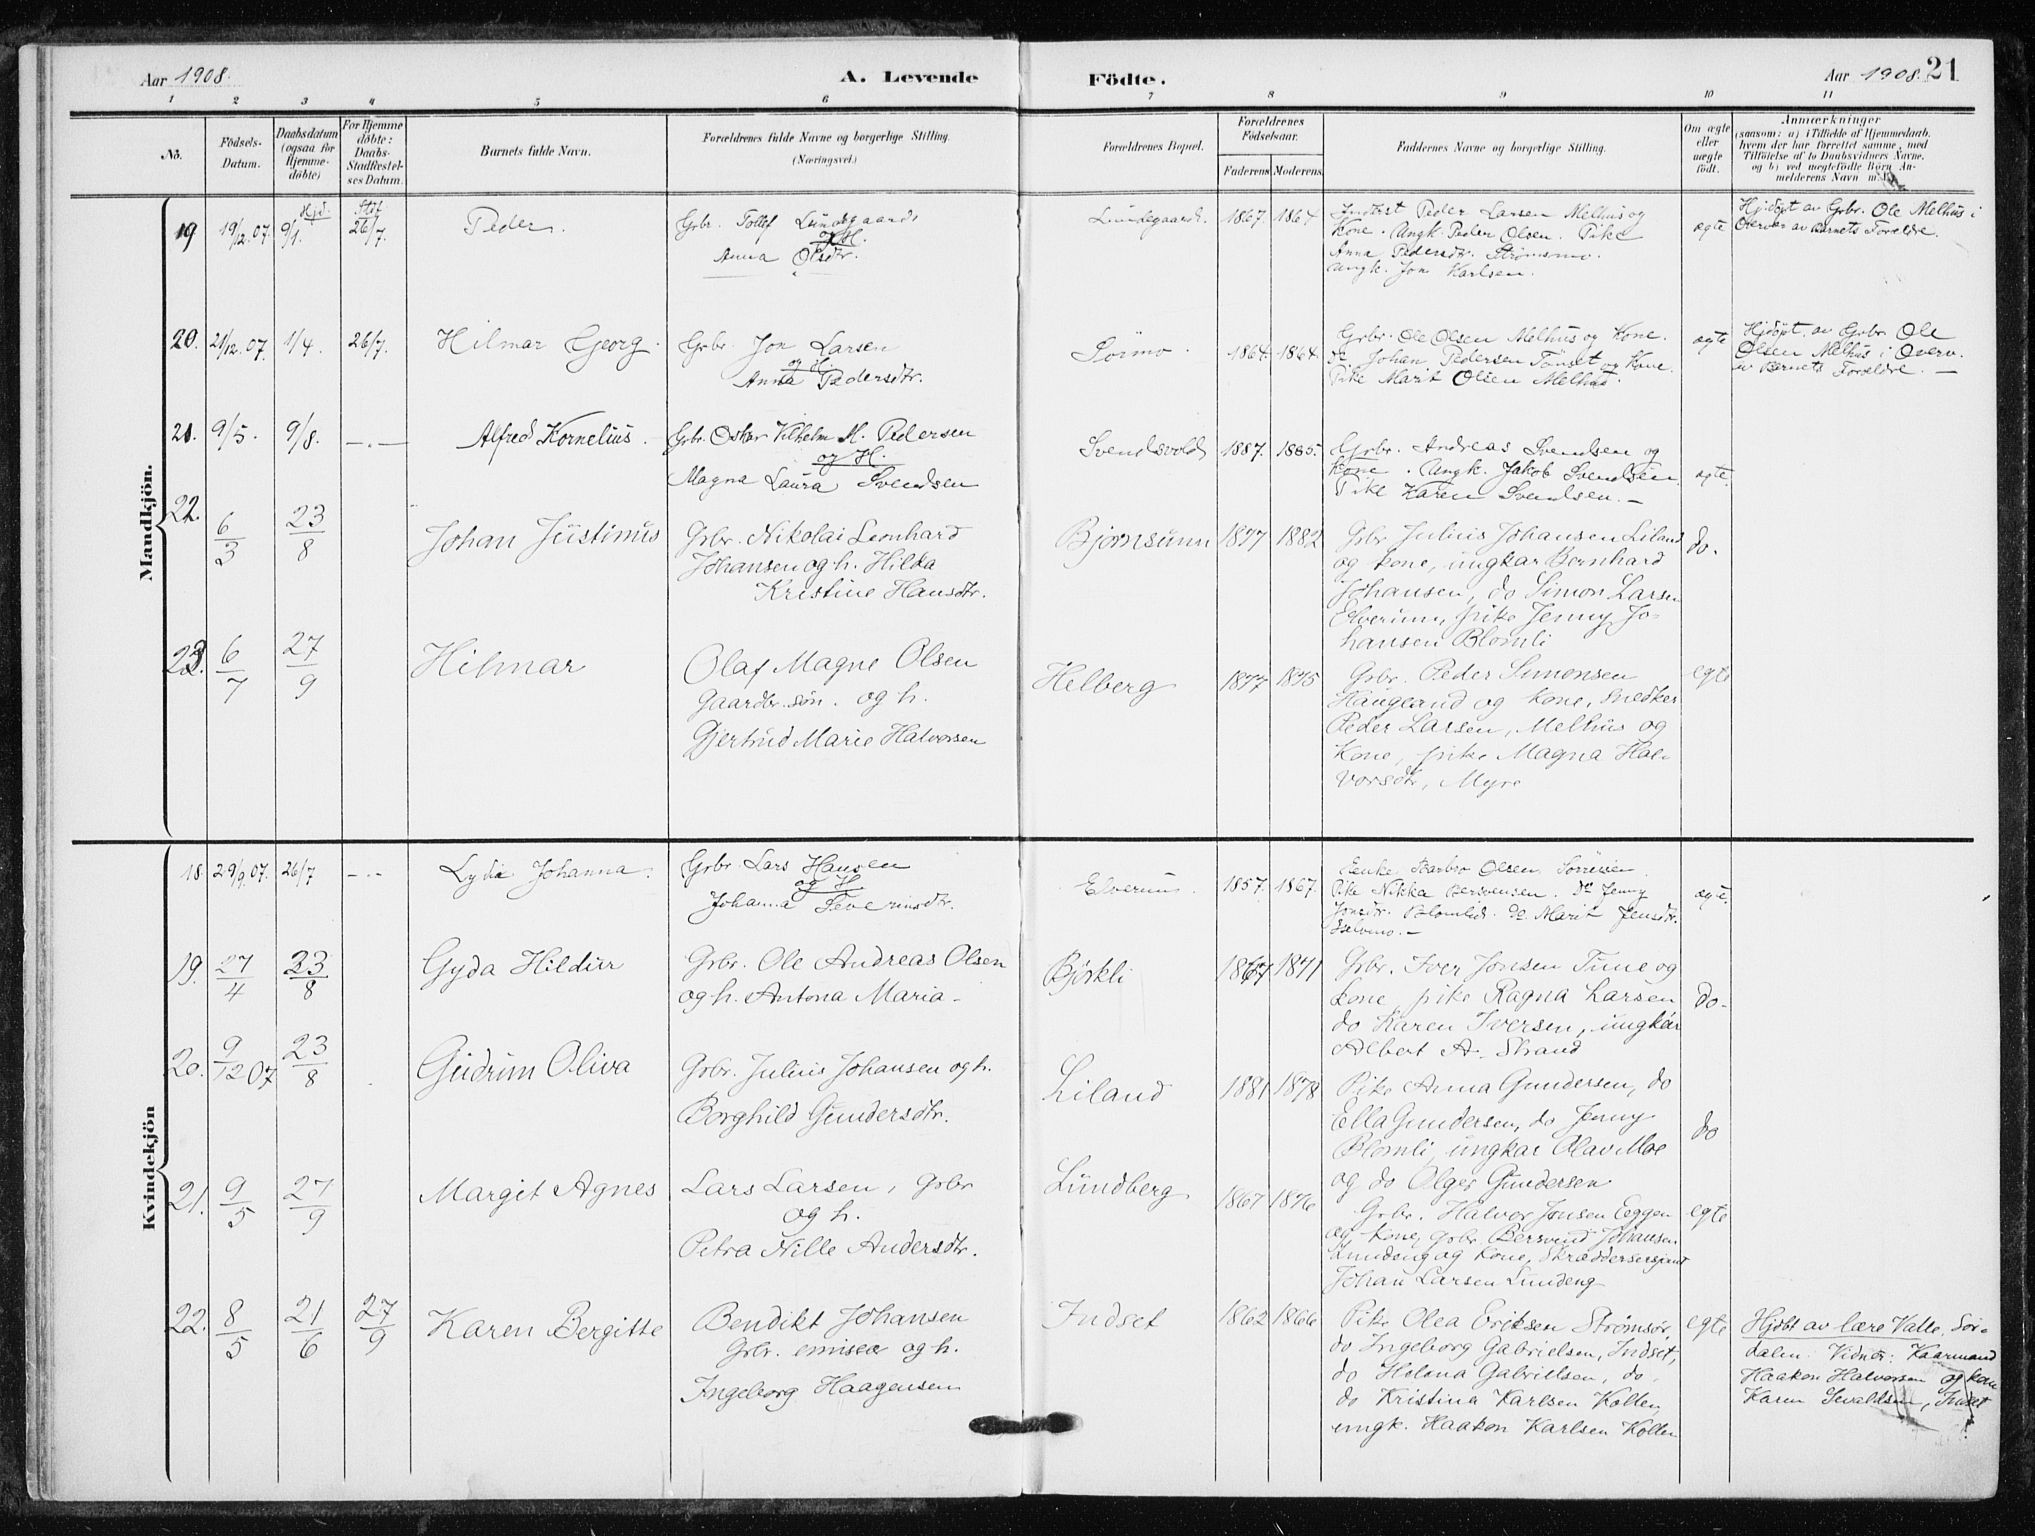 Aar 1908.
A. Levende
Födte.
Aar 1908.
21
1 2 3 4 5 6 7 8 9 10 11
No.
Födsels-
Datum.
Daabsdatum
(ogsaa for
Hjemme-
döbte)
For Hjemme
döbte:
Daabs-
Stadfæstel-
ses Datum.
Barnets fulde Navn.
Forældrenes fulde Navne og borgerlige Stilling.
(Næringsvei.)
Forældrenes Bopæl.
Forældrenes
Födselsaar.
Faderens Moderens
Faddernes Navne og borgerlige Stilling.
Om ægte
eller
uægte
födt.
Anmærkninger
(saasom: a) i Tilfælde af Hjemmedaab,
hvem der har forrettet samme, med
Tilföielse af to Daabsvidners Navne,
og b) ved uægtefödte Börn An-
melderens Navn m. V.
Mandkjön.
19 19/12.07. Hjd. 9/1. Stdf. 26/7. Peder.
Grbr. Tollef Lundegaard
og H.
Anna Olsdtr.
Lundegaard. 1867. 1864.
Indtrst Peder Larsen Melhus og
Kone. Ungk. Peder Olsen. Pike
Anna Pedersdtr. Strømsmo.
Ungk. Jon Karlsen.
ægte
Hjdöpt av Grbr. Ole Melhus i
Overvær av Barnets Forældre.
20. 21/12.07. 1/4. 26/7. Hilmar Georg.
Grbr. Jon Larsen
og H.
Anna Pedersdtr.
Sörmo. 1864. 1864.
Grbr. Ole Olsen Melhus og Kone.
do Johan Pedersen Tönset og Kone.
Pike Marit Olsen Melhus.
ægte
Hjdöpt. av Grbr. Ole
Olsen Melhus i Overv.
av Barnets Forældre. —
21. 9/5. 9/8. —.— Alfred Kornelius.
Grbr. Oskar Vilhelm M. Pedersen
og H.
Magna Laura Svendsen
Svendsvold 1887. 1885.
Grbr. Andreas Svendsen og
Kone. Ungk. Jakob Svendsen.
Pike Karen Svendsen. —
ægte.
22. 6/3 23/8 Johan Justinus
Grbr. Nikolai Leonhard
Johansen og h. Hilda
Kristine Hansdtr.
Bjørnsunn 1877 1882
Grbr Julius Johansen Liland
og kone, ungkar Bernhard
Johansen, do Simon Larsen
Elverum, pike Jenny Jo-
hansen Blomli
do.
23. 6/7 27/9 Hilmar
Olaf Magne Olsen
Gaardbr. søn. og h.
Gjertrud Marie Halvorsen
Helberg 1877 1875
Grbr. Peder Simonsen
Haugland og kone, Snedker
Peder Larsen, Melhus og
Kone, pike Magna Hal-
vorsdtr, Myre
egte
Kvindekjön
18. 29/9.07. 26/7 —.— Lydia Johanna.
Grbr. Lars Hansen
og H
Johanna Severinsdtr.
Elverum. 1857. 1867.
Enke Barbro Olsen
Pike Nikka Bersvensen. Do Jenny
Jonsdtr. Blomlid. do Marit Jensdtr.
ægte.
19. 27/4 23/8 Gyda Hildur
Grbr. Ole Andreas Olsen
og h. Antona Maria -
Björkli 1867 1871
Grbr. Iver Jonsen Tune og
kone, pike Ragna Larsen
do Karen Iversen, ungkar
Albert A. Strand
do.
20. 9/12 07 23/8 Gudrun Oliva
Grbr. Julius Johansen og h.
Borghild Gundersdtr.
Liland 1881 1878
Pike Anna Gundersen, do
Ella Gundersen, do Jenny
Blomli, ungkar Olav Moe
og do Olger Gundersen
do
21. 9/5 27/9 Margit Agnes
Lars Larsen, Grbr
og h.
Petra Nille Andersdtr.
Lundberg. 1867 1876
Grbr. Halvor Jonsen Eggen
og kone, Grbr Bersvend Johansen
Lundeng og kone, Skræddersersjant
Johan Larsen Lundeng
egte
22. 8/5 21/6 27/9 Karen Bergitte
Bendikt Johansen
Grbr. emisær og h.
Ingeborg Haagensen
Indset 1862 1866
Pike Olea Eriksen Strømsør,
do Ingeborg Gabrielsen, Indset,
do Helena Gabrielsen, do.
do Kristina Karlsen Kollen,
ungk. Haakon Karlsen Kollen
egte
Hjdøbt av lære Valle, Sör-
dalen. Vidner: Kaarmand
Haakon Halvorsen og kone
Karen Sevaldsen, Indset